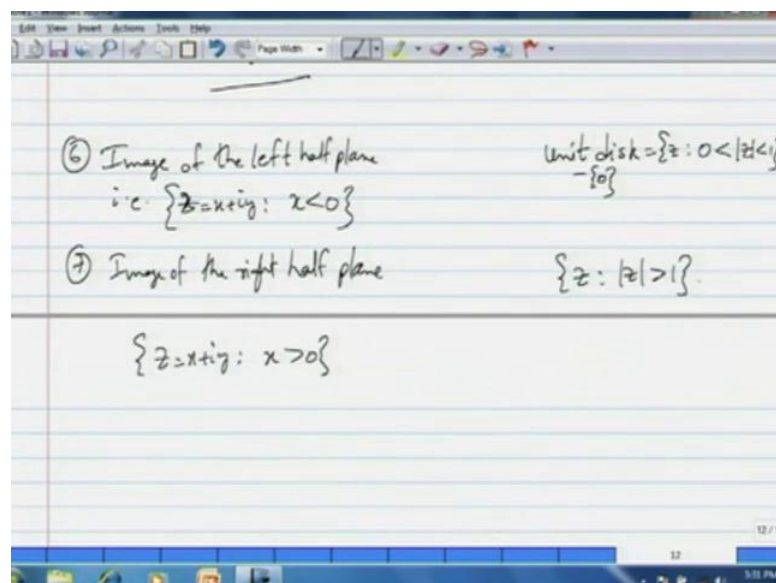 Edit View Insert Actions Tools Help
Page Width
⑥ Image of the left half plane
i.e. {z=x+iy: x<0}
unit disk={z: 0<|z|<1}
-{0}
⑦ Image of the right half plane
{z: |z|>1}.
{z=x+iy: x>0}
12/
12
3:31 PM